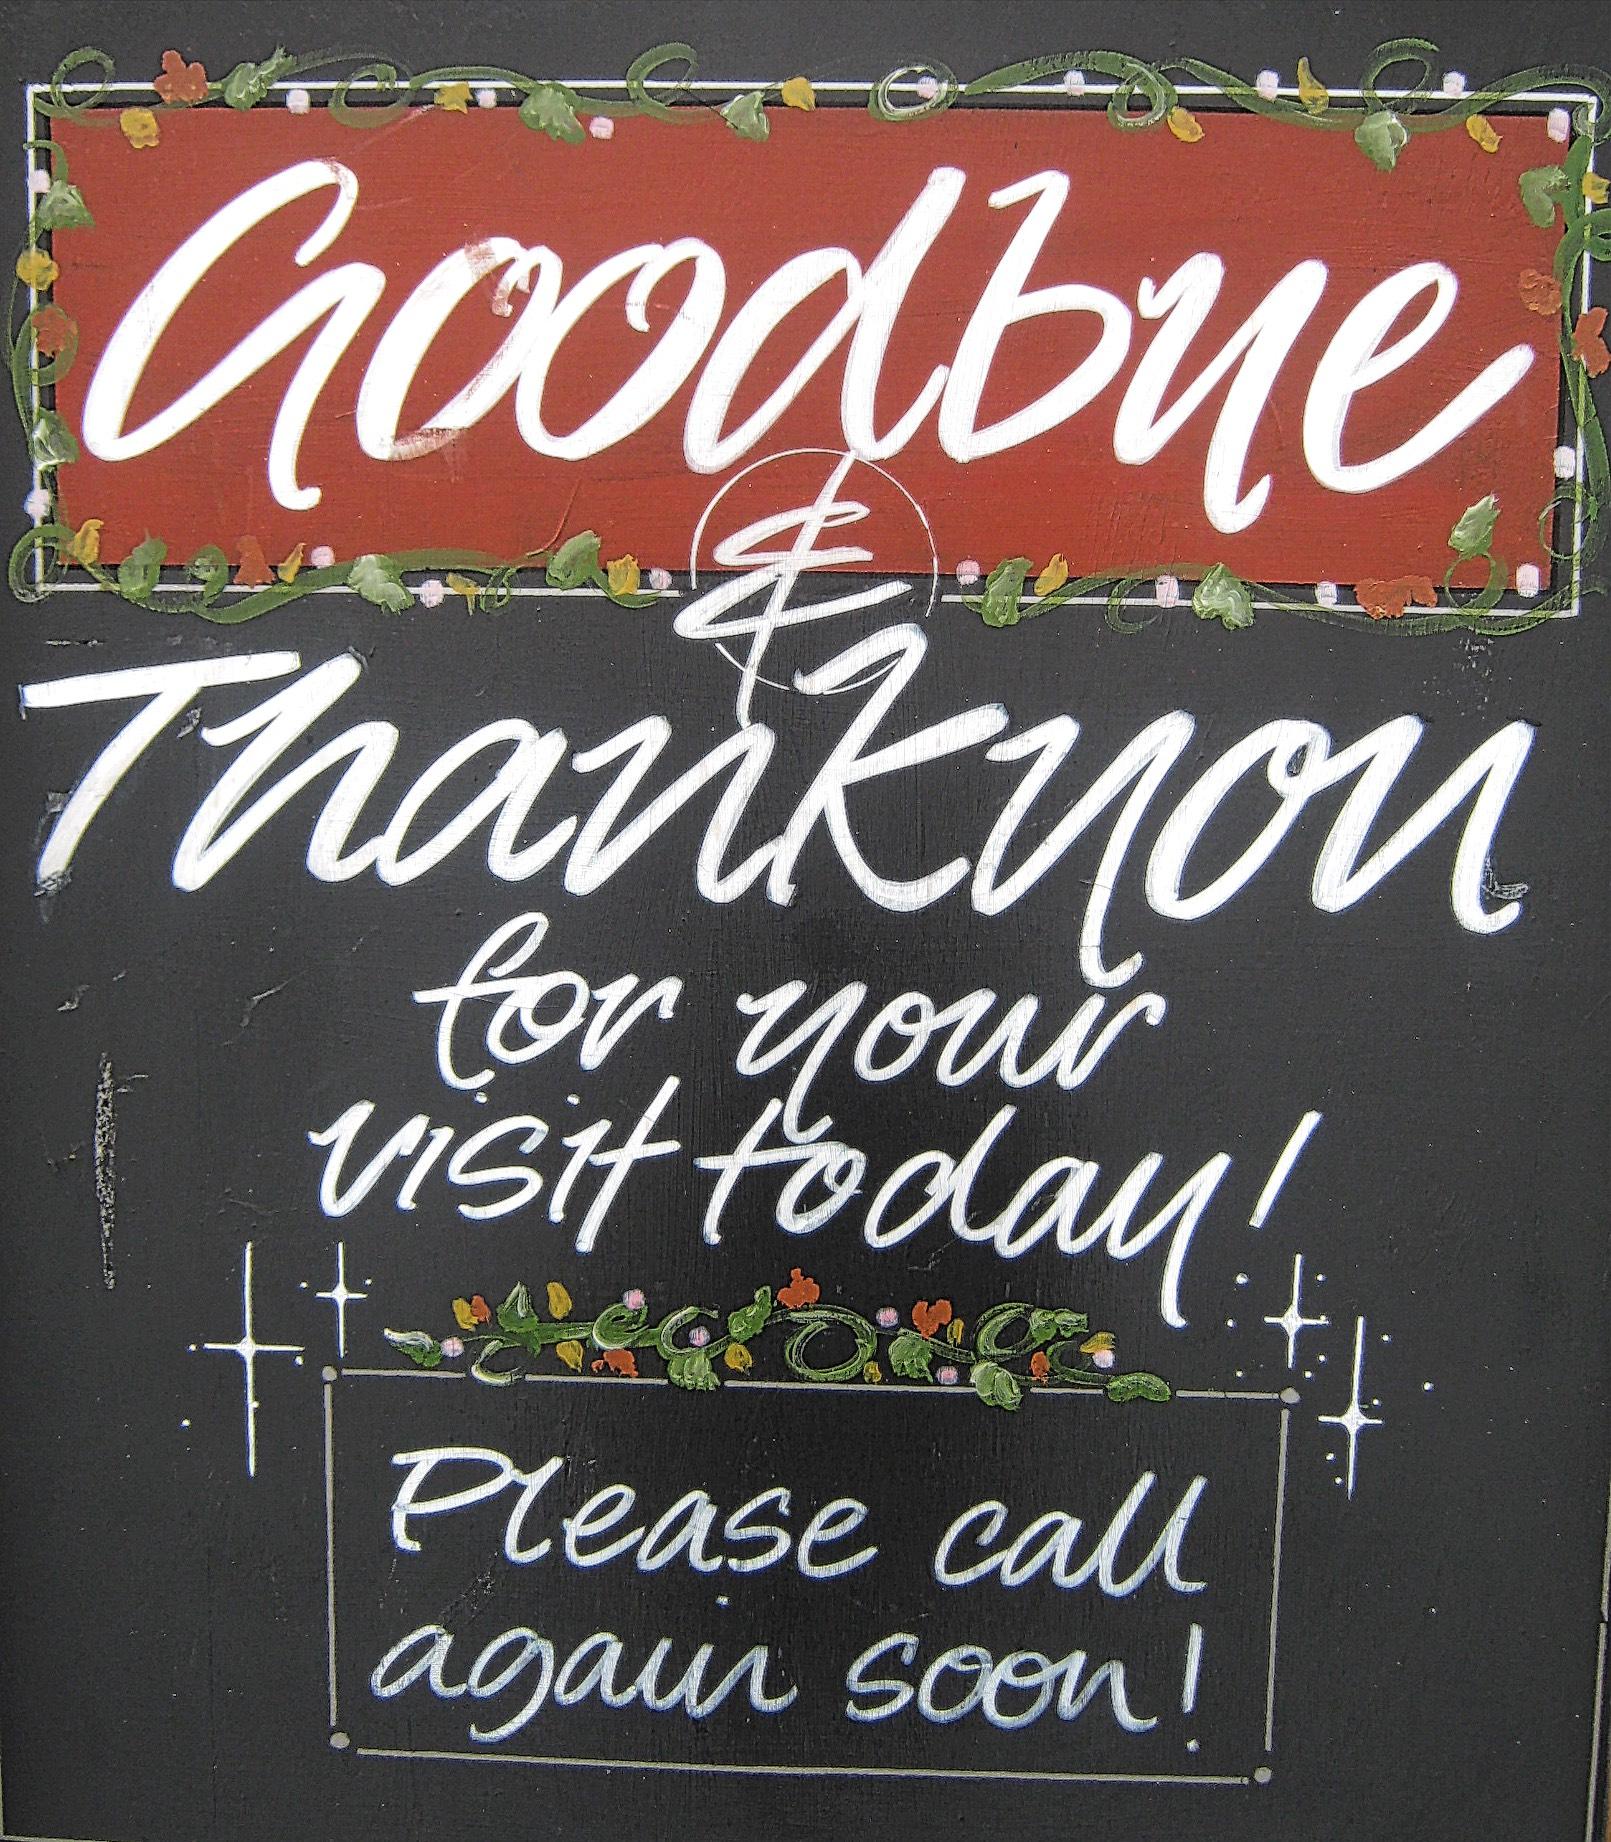 Goodbye
&
Thank you
for your
visit today!
Please call
again soon!